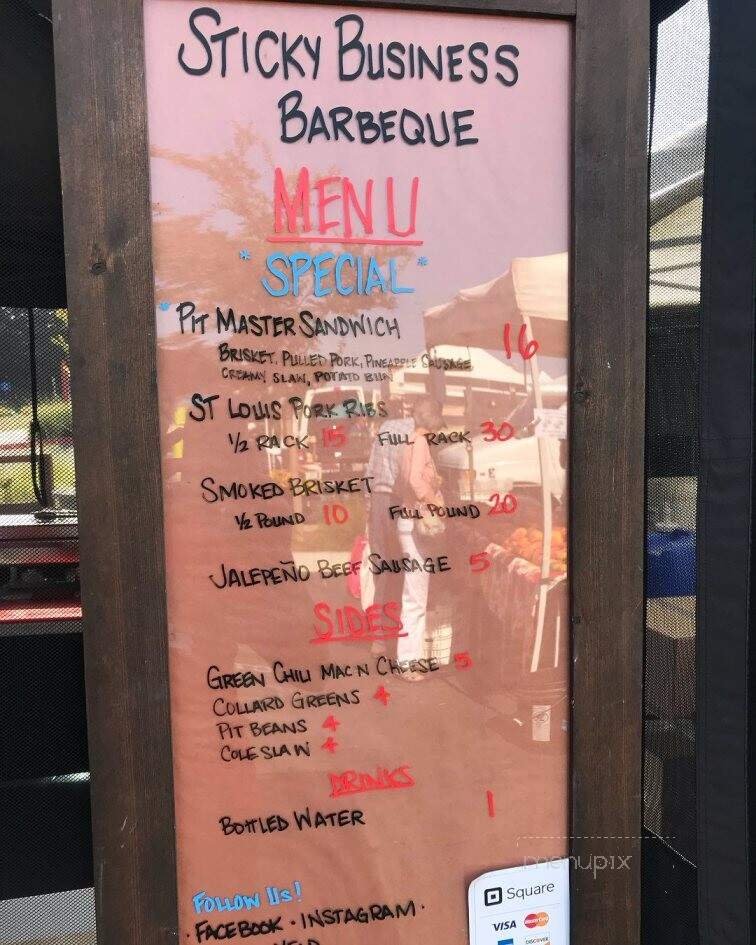 STICKY BUSINESS
BARBEQUE
MENU
*SPECIAL*
*PIT MASTER SANDWICH 16
BRISKET, PULLED PORK, PINEAPPLE SAUSAGE,
CREAMY SLAW, POTATO BUN
ST LOUIS PORK RIBS
1/2 RACK 15 FULL RACK 30
SMOKED BRISKET
1/2 POUND 10 FULL POUND 20
JALEPEÑO BEEF SAUSAGE 5
SIDES
GREEN CHILI MAC N CHEESE 5
COLLARD GREENS 4
PIT BEANS 4
COLESLAW 4
DRINKS
BOTTLED WATER 1
FOLLOW US!
· FACEBOOK · INSTAGRAM ·
menupix
Square
VISA MasterCard
DISCOVER